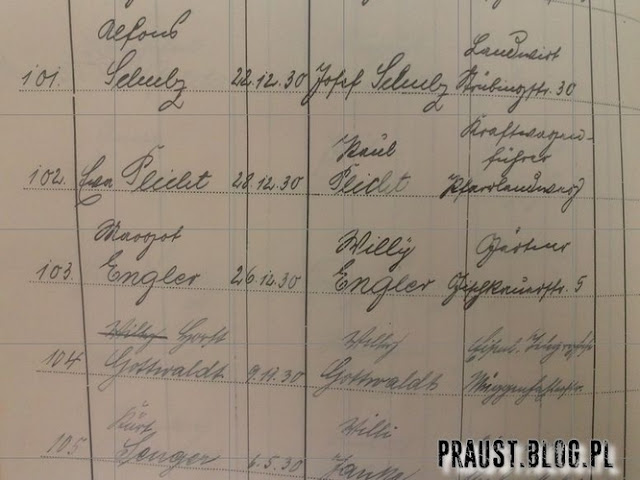 Alfons Landwirt
101. Schulz 22.12.30 Josef Schulz Stübingstr. 30
Paul Kraftwagen-
führer
102. Eva Plicht 28.12.30 Plicht Pfarrlandweg
Margot Willy Gärtner
103. Engler 26.12.30 Engler str. 5
Willy Horst Willy
104 Gottwaldt 9.11.30 Gottwaldt
Kurt Willi
105 6.5.30
PRAUST.BLOG.PL